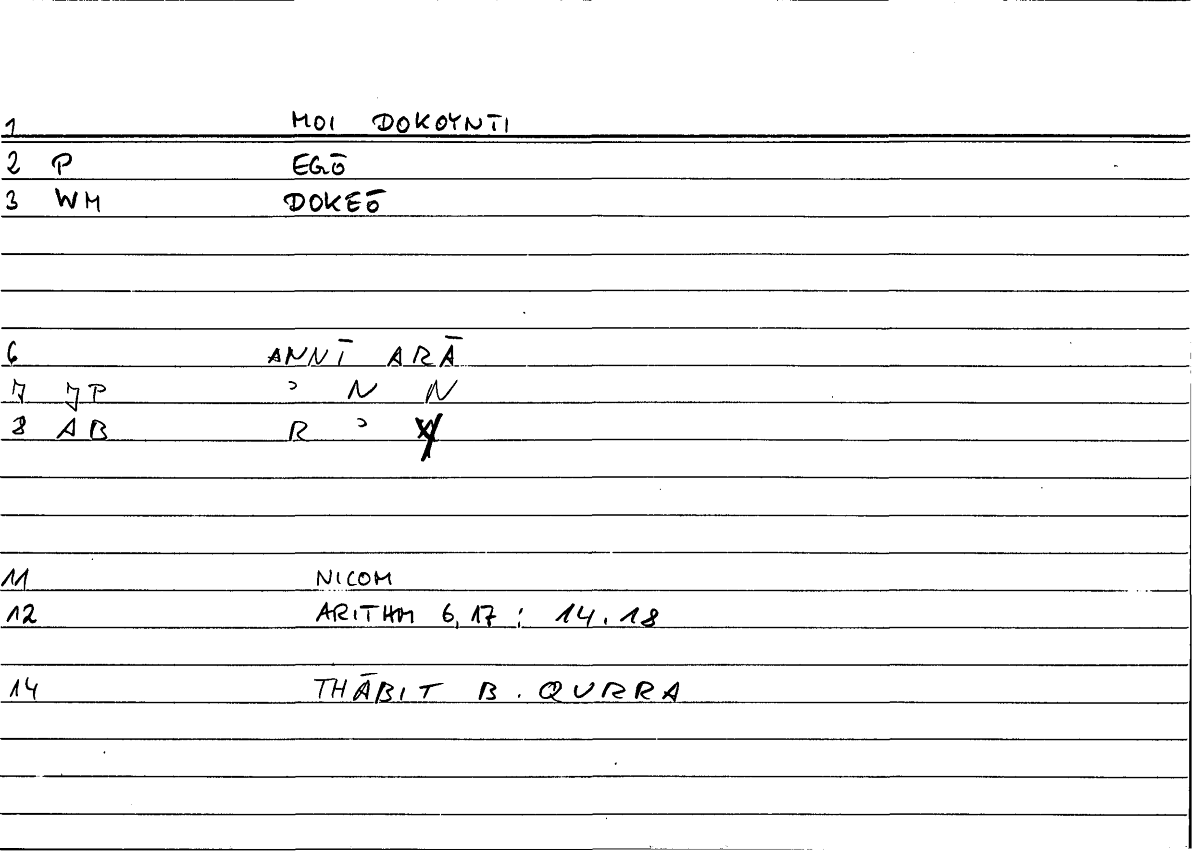 1 MOI DOKOYNTI
2 P EGŌ
3 WM DOKEŌ
6 ANNĪ ARĀ
7 JP ɔ N N
8 AB R ɔ
11 NICOM
12 ARITHM 6,17 : 14.18
14 THĀBIT B. QURRA